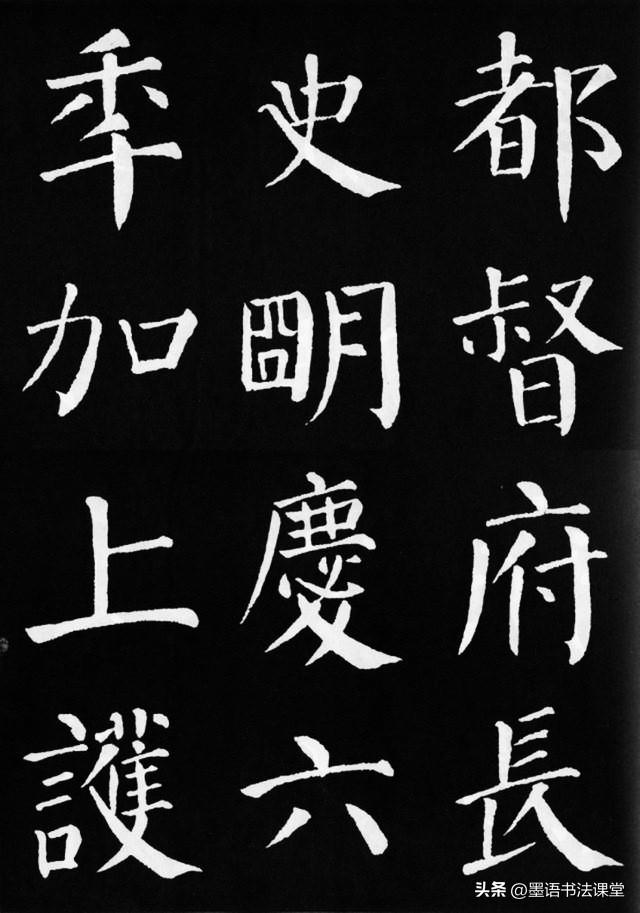 都督府長
史朙慶六
秊加上護
头条 @墨语书法课堂